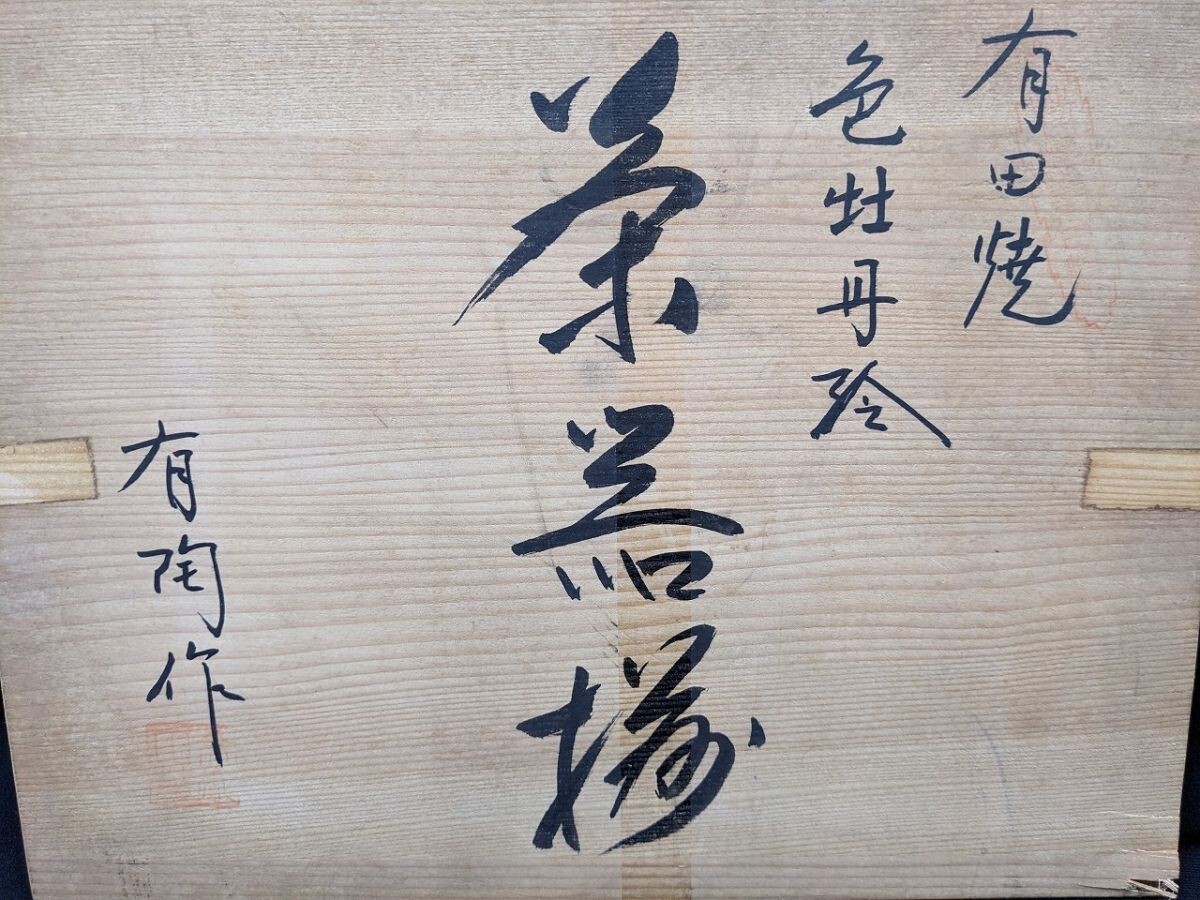 有田焼
色牡丹絵
茶器揃
有陶作